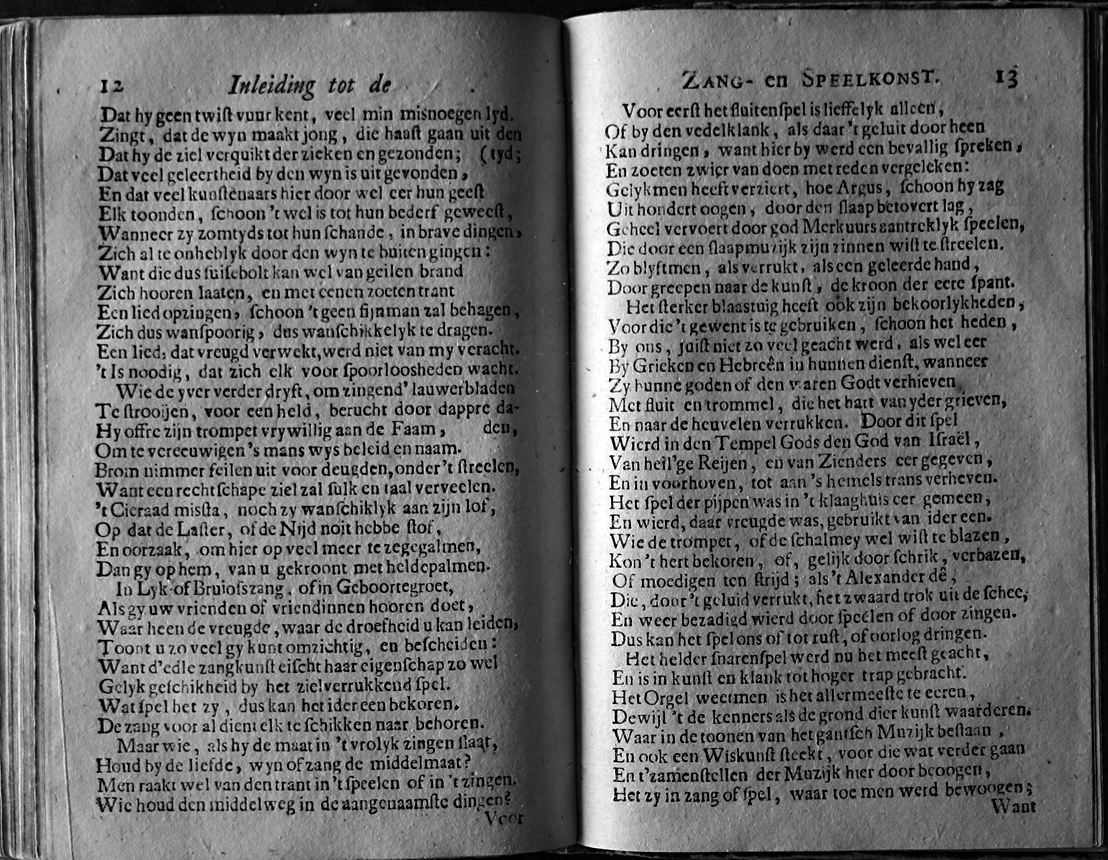 12 Inleiding tot de
Dat hy geen twiſt vuur kent, veel min misnoegen lyd.
Zingt, dat de wyn maakt jong, die haaſt gaan uit den
Dat hy de ziel verquikt der zieken en gezonden; (tyd;
Dat veel geleertheid by den wyn is uit gevonden,
En dat veel kunſtenaars hier door wel eer hun geeſt
Elk toonden, ſchoon 't wel is tot hun bederf geweeſt,
Wanneer zy zomtyds tot hun ſchande, in brave dingen,
Zich al te onheblyk door den wyn te buiten gingen:
Want die dus ſuiſebolt kan wel van geilen brand
Zich hooren laaten, en met eenen zoeten trant
Een lied opzingen, ſchoon 't geen fijnman zal behagen,
Zich dus wanſpoorig, dus wanſchikkelyk te dragen.
Een lied, dat vreugd verwekt, werd niet van my veracht.
't Is noodig, dat zich elk voor ſpoorloosheden wacht.
Wie de yver verder dryft, om zingend' lauwerbladen
Te ſtrooijen, voor een held, berucht door dappre da-
Hy offre zijn trompet vrywillig aan de Faam, den,
Om te vereeuwigen 's mans wys beleid en naam.
Brom nimmer feilen uit voor deugden, onder 't ſtreelen,
Want een rechtſchape ziel zal ſulk en taal verveelen.
't Cieraad miſſta, noch zy wanſchiklyk aan zijn lof,
Op dat de Laſter, of de Nijd noit hebbe ſtof,
En oorzaak, om hier op veel meer te zegegalmen,
Dan gy op hem, van u gekroont met heldepalmen.
In Lyk-of Bruiofszang, of in Geboortegroet,
Als gy uw vrienden of vriendinnen hooren doet,
Waar heen de vreugde, waar de droefheid u kan leiden,
Toont u zo veel gy kunt omzichtig, en beſcheiden:
Want d'edle zangkunſt eiſcht haar eigenſchap zo wel
Gelyk geſchikheid by het zielverrukkend ſpel.
Wat ſpel het zy, dus kan het ider een bekoren.
De zang voor al dient elk te ſchikken naar behoren.
Maar wie, als hy de maat in 't vrolyk zingen ſlaat,
Houd by de liefde, wyn of zang de middelmaat?
Men raakt wel van den trant in 't ſpeelen of in 't zingen.
Wie houd den middelweg in de aangenaamſte dingen?
Voor
ZANG- en SPEELKONST. 13
Voor eerſt het fluitenſpel is lieffelyk alleen,
Of by den vedelklank, als daar 't geluit door heen
Kan dringen, want hier by werd een bevallig ſpreken,
En zoeten zwier van doen met reden vergeleken:
Gelykmen heeft verziert, hoe Argus, ſchoon hy zag
Uit hondert oogen, door den ſlaap betovert lag,
Geheel vervoert door god Merkuurs aantreklyk ſpeelen,
Die door een ſlaapmuzijk zijn zinnen wiſt te ſtreelen.
Zo blyftmen, als verrukt, als een geleerde hand,
Door greepen naar de kunſt, de kroon der eere ſpant.
Het ſterker blaastuig heeft ook zijn bekoorlykheden,
Voor die 't gewent is te gebruiken, ſchoon het heden,
By ons, juiſt niet zo veel geacht werd, als wel eer
By Grieken en Hebreên in hunnen dienſt, wanneer
Zy hunne goden of den waren Godt verhieven
Met fluit en trommel, die het hart van yder grieven,
En naar de heuvelen verrukken. Door dit ſpel
Wierd in den Tempel Gods den God van Iſraël,
Van heil'ge Reijen, en van Zienders eer gegeven,
En in voorhoven, tot aan 's hemels trans verheven.
Het ſpel der pijpen was in 't klaaghuis eer gemeen,
En wierd, daar vreugde was, gebruikt van ider een.
Wie de trompet, of de ſchalmey wel wiſt te blazen,
Kon 't hert bekoren, of, gelijk door ſchrik, verbazen,
Of moedigen ten ſtrijd; als 't Alexander dê,
Die, door 't geluid verrukt, het zwaard trok uit de ſchee,
En weer bezadigd wierd door ſpeelen of door zingen.
Dus kan het ſpel ons of tot ruſt, of oorlog dringen.
Het helder ſnarenſpel werd nu het meeſt geacht,
En is in kunſt en klank tot hoger trap gebracht.
Het Orgel weetmen is het allermeeſte te eeren,
Dewijl 't de kenners als de grond dier kunſt waarderen.
Waar in de toonen van het gantſch Muzijk beſtaan,
En ook een Wiskunſt ſteekt, voor die wat verder gaan
En t'zamenſtellen der Muzijk hier door beoogen,
Het zy in zang of ſpel, waar toe men werd bewoogen;
Want